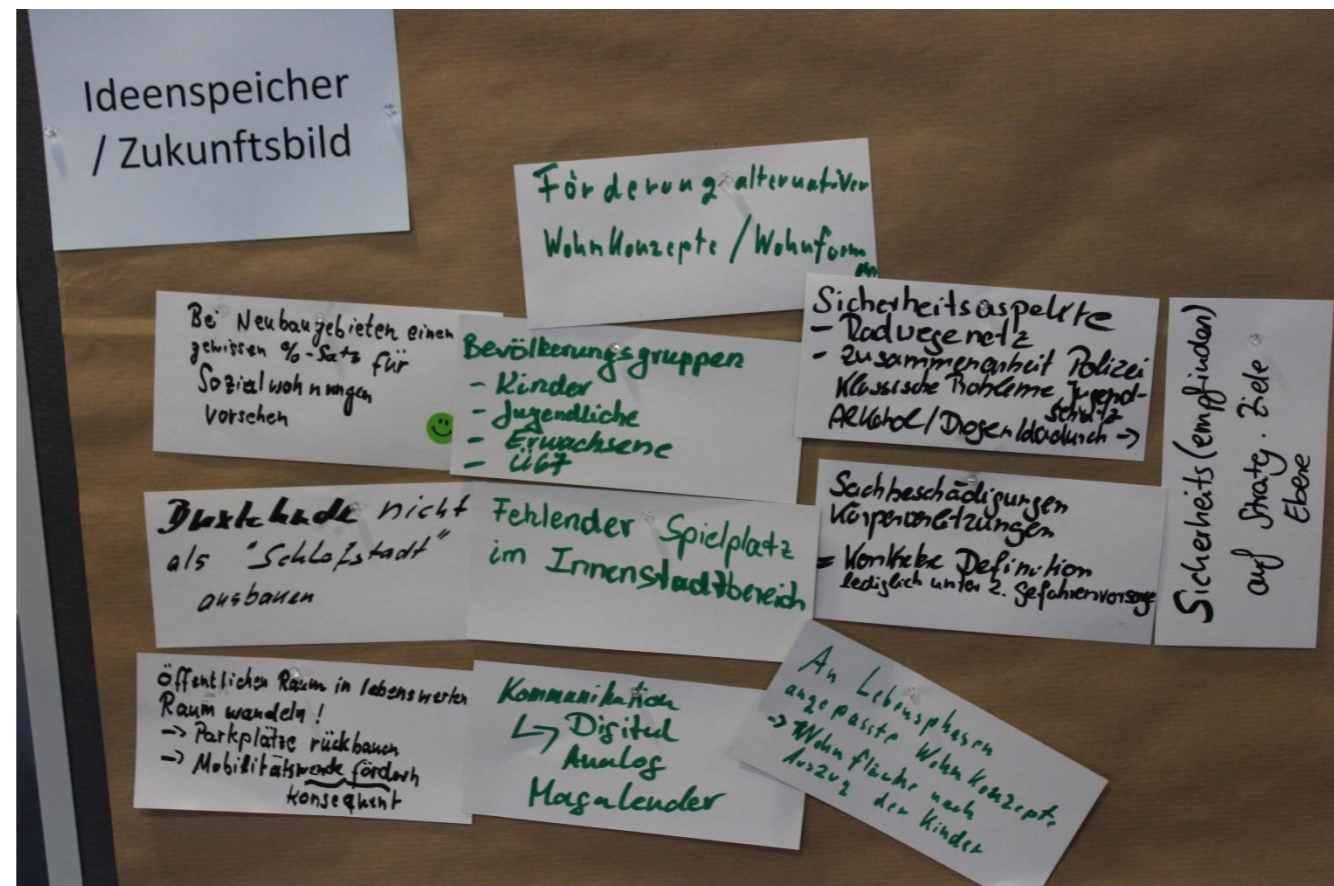 Ideenspeicher
/ Zukunftsbild
Förderung alternativer
Wohnkonzepte / Wohnform
en
Bei Neubaugebieten einen
gewissen %-Satz für
Sozialwohnungen
vorsehen
Bevölkerungsgruppen
- Kinder
- Jugendliche
- Erwachsene
- Ü67
Sicherheitsaspekte
- Radwegenetz
- Zusammenarbeit Polizei
Klassische Probleme Jugend-
schutz
Alkohol / Drogen / dadurch ->
Sicherheits(empfinden)
auf Strateg. Ziele
Ebene
Buxtehude nicht
als "Schlafstadt"
ausbauen
Fehlender Spielplatz
im Innenstadtbereich
Sachbeschädigungen
Körperverletzungen
= Konkrete Definition
lediglich unter 2. Gefahrenvorsorge
Öffentlichen Raum in lebenswerten
Raum wandeln!
-> Parkplätze rückbauen
-> Mobilitätswende fördern
konsequent
Kommunikation
↳ Digital
Analog
An Lebensphasen
angepasste Wohnkonzepte
-> Wohnfläche nach
Auszug der Kinder